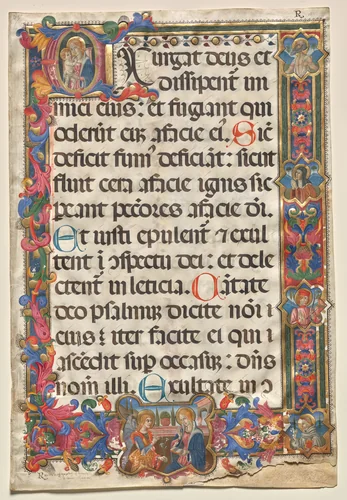 R
EXurgat deus et
dissipent' ini
mici eius: et fugiant qui
oderūt eū afacie ei'. Sic̄
deficit fum' deficiāt: sicut
fluit cera afacie ignis sic
peant pecc̄ores afacie dēi.
Et iusti epulent' & exul
tent ī cōspectu dei: et dele
ctent' in leticia. Cātate
deo psalmū dicite nōi ı
eius: iter facite ei qui
ascēdit sup occasū: dn̄s
nom̄ illi. Exultate in ↄ
R